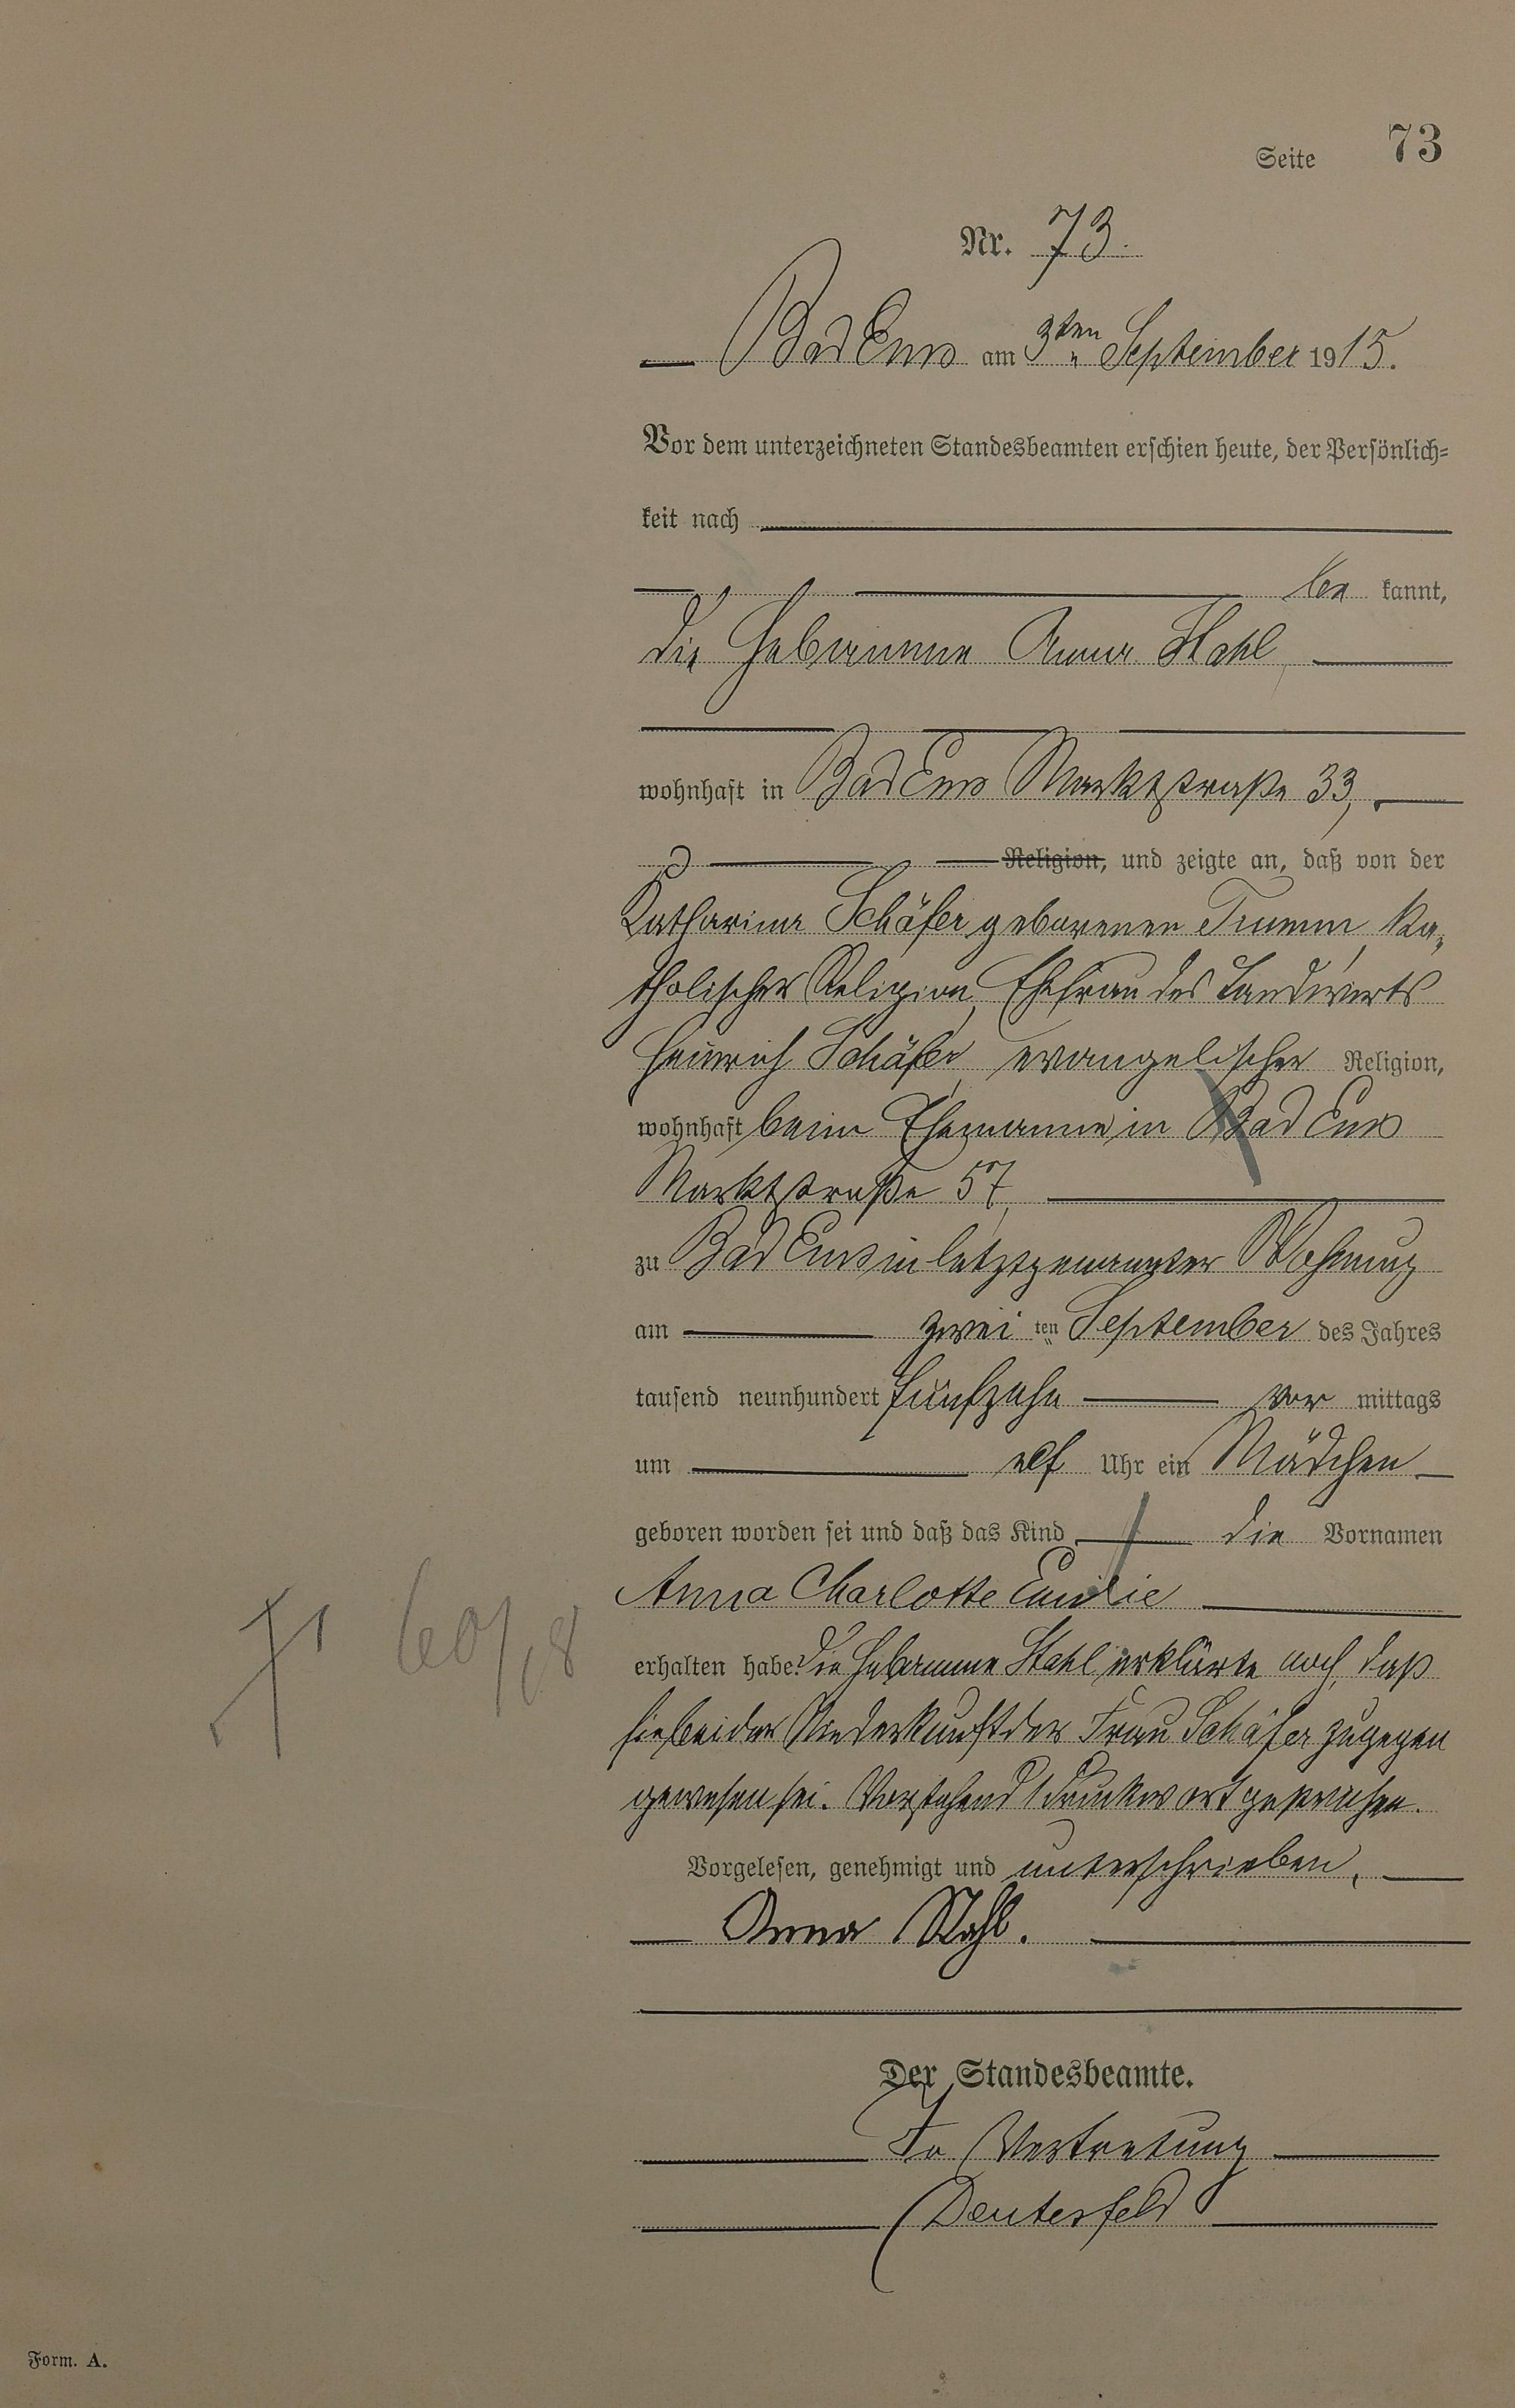 Seite 73
Nr. 73.
Bad Ems am 3ten September 1915.
Vor dem unterzeichneten Standesbeamten erschien heute, der Persönlich=
keit nach
be kannt,
die Hebamme Anna Stahl,
wohnhaft in Bad Ems Marktstraße 33,
Religion, und zeigte an, daß von der
Katharina Schäfer geborenen Trumm, ka=
tholischer Religion, Ehefrau des Landwirts
Heinrich Schäfer, evangelischer Religion,
wohnhaft beim Ehemanne in Bad Ems
Marktstraße 57,
zu Bad Ems in letztgenannter Wohnung
am zwei ten September des Jahres
tausend neunhundert fünfzehn vor mittags
um elf Uhr ein Mädchen
geboren worden sei und daß das Kind die Vornamen
Anna Charlotte Emilie
erhalten habe. Die Hebamme Stahl erklärte noch, daß
sie bei der Niederkunft der Frau Schäfer zugegen
gewesen sei. Vorstehend 1 Druckwort gestrichen.
Vorgelesen, genehmigt und unterschrieben,
Anna Stahl.
Der Standesbeamte.
In Vertretung
Deutesfeld
Form. A.